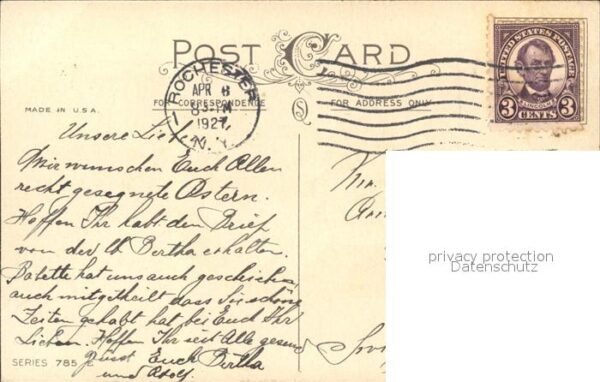 POST CARD
UNITED STATES POSTAGE
LINCOLN
3 CENTS 3
ROCHESTER
APR 6
PM
1927
N.Y.
FOR CORRESPONDENCE
FOR ADDRESS ONLY
MADE IN U.S.A.
Unsere
Wir wünschen Euch Allen
recht gesegnete Ostern.
Hoffen Ihr habt den Brief
von der lb Bertha erhalten.
Babette hat uns auch geschrieben
auch mitgetheilt dass Sie schöne
Zeiten gehabt hat bei Euch Ihr
Lieben. Hoffen Ihr seit Alle gesund
Grüsst Euch Bertha
und Adolf.
SERIES 785
privacy protection
Datenschutz